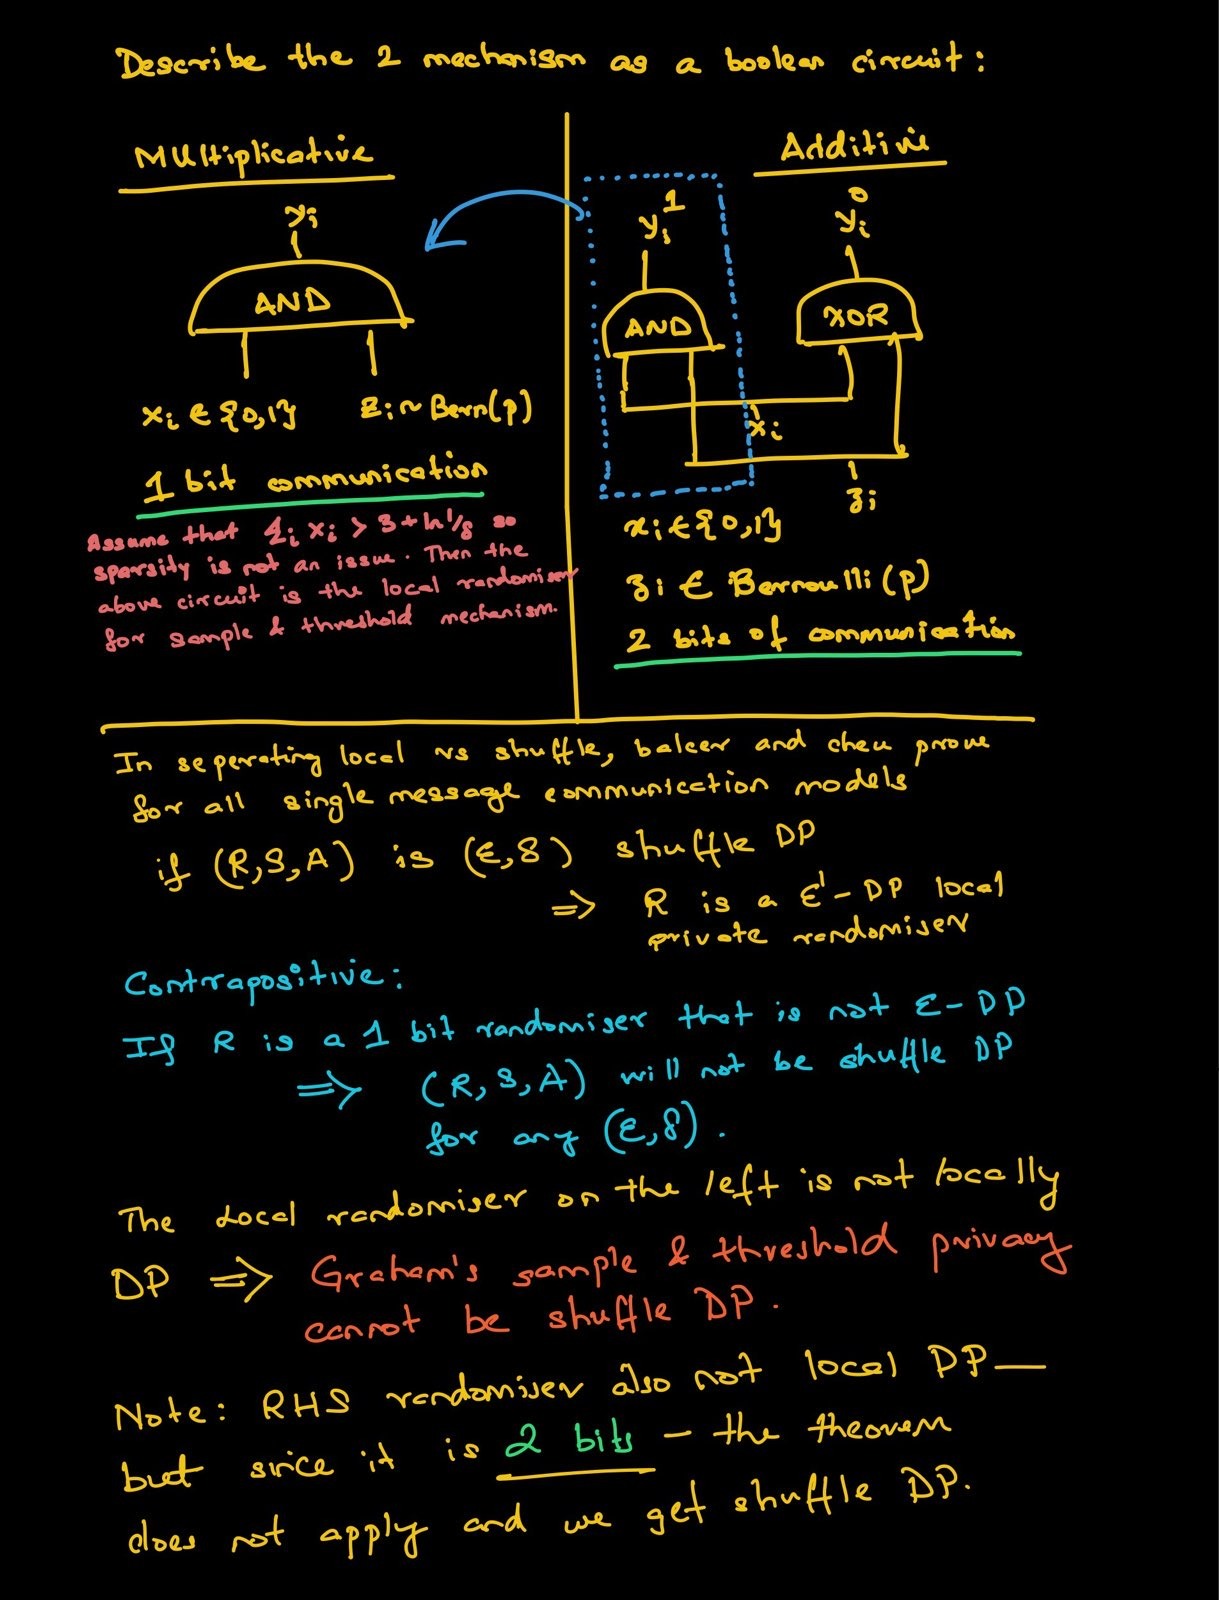 Describe the 2 mechanism as a boolean circuit:
Multiplicative
yi
AND
xi ∈ {0,1} zi ~ Bern(p)
1 bit communication
Assume that Σi xi > 3 + ln 1/δ so
sparsity is not an issue. Then the
above circuit is the local randomiser
for sample & threshold mechanism.
Additive
yi^1 yi^0
AND XOR
xi
zi
xi ∈ {0,1}
zi ∈ Bernoulli (p)
2 bits of communication
In seperating local vs shuffle, balcer and cheu prove
for all single message communication models
if (R,S,A) is (ε,δ) shuffle DP
⇒ R is a ε' - DP local
private randomiser
Contrapositive:
If R is a 1 bit randomiser that is not ε - DP
⇒ (R, S, A) will not be shuffle DP
for any (ε,δ).
The Local randomiser on the left is not locally
DP ⇒ Graham's sample & threshold privacy
cannot be shuffle DP.
Note: RHS randomiser also not local DP —
but since it is 2 bits - the theorem
does not apply and we get shuffle DP.